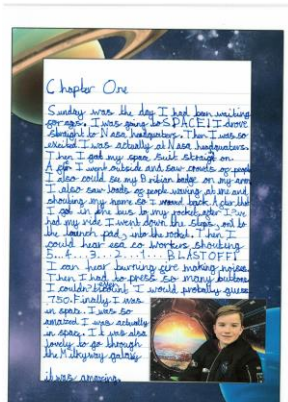 Chapter One
Sunday was the day I had been waiting
for ages. I was going to SPACE! I drove
straight to Nasa headquaters. Then I was so
excited I was actually at Nasa headquaters.
Then I got my space suit straight on.
After I went outside and saw crowds of people
I also could see my British badge on my arm
I also saw loads of people waving at me and
shouting my name so I waved back. After that
I got in the bus to my rocket, after I've
had my ride I went down the steps, out to
the launch pad, into the rocket. Then I
could hear esa co workers shouting
5... 4... 3... 2... 1... BLASTOFF!
I can hear burning fire making noises.
Then I had to press so many buttons
I couldn't count I would probally guess
750. Finally I was
in space. I was so
amazed I was actually
in space. It was also
lovely to go through
the Milkyway galaxy
it was amazing.